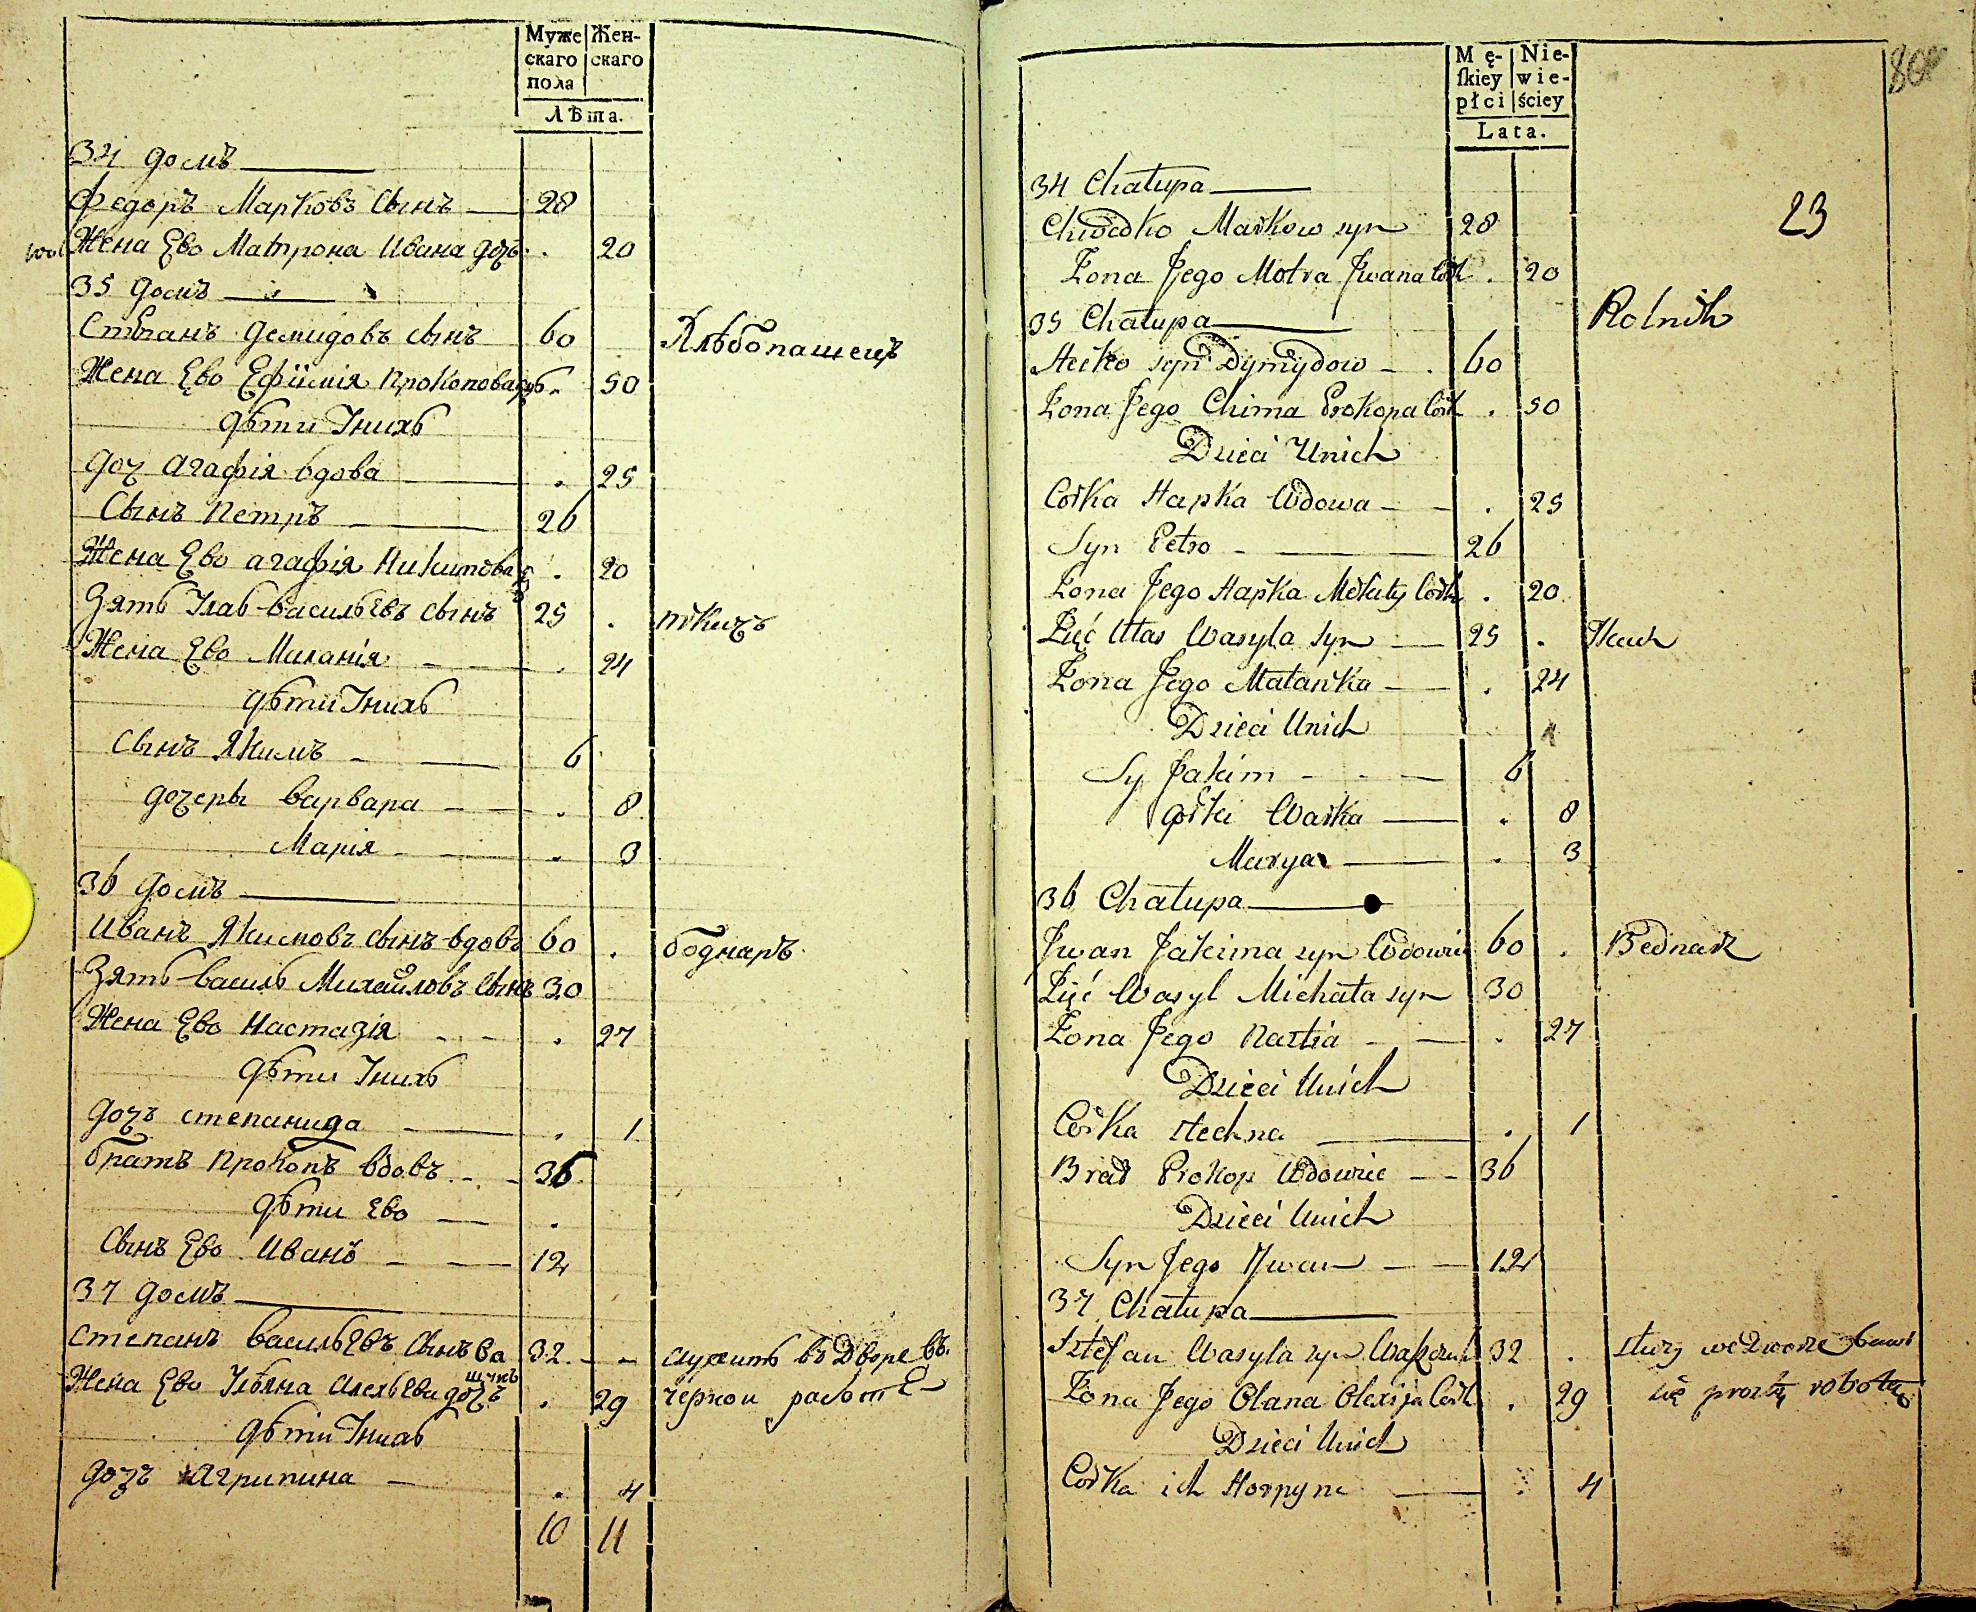 Муже
скаго
пола
Жен-
скаго
Лѣта.
34 домъ
Федоръ Марковъ Сынъ 28
Жена Ево Матрона Ивана доч. 20
35 домъ
Степанъ Демидовъ сынъ 60 Хлѣбопашецъ
Жена Ево Ефiимiя Прокопова 50
дѣти Iнихъ
доч Агафiя вдова . 25
Сынъ Петръ 26
Жена Ево агафiя Никитова . 20
Зять Улас васильевъ сынъ 25 . ткачъ
Жена Ево Миланiя . 24
дѣти Iнихъ
Сынъ Якимъ 6
дочеры варвара . 8
Марiя . 3
36 домъ
Иванъ Якимовъ сынъ вдовъ 60 . боднаръ
Зять василь Михайловъ сынъ 30
Жена Ево Настазiя . 27
дѣти Iнихъ
дочъ степанида . 1
братъ Прокопъ вдовъ 36
дѣти Ево .
Сынъ Ево Иванъ 12
37 домъ
степанъ васильевъ сынъ Ва 32 служитъ въ дворе въ
щукъ
Жена Ево Ульяна Алексѣева дочъ . 29 черной работе
дѣти Iнихъ
дочъ Агрипина . 4
10 11
Mę-
ſkiey
płci
Nie-
wie-
ściey
Lata.
80
23
34 Chałupa
Chwedko Markow syn 28
Żona Jego Motra Jwana Cork . 20
35 Chałupa Rolnik
Stećko syn Dymydow . 60
Żona Jego Chima Prokopa Cork . 50
Dzieci Unich
Corka Hapka Wdowa . 25
Syn Petro 26
Żona Jego Hapka Mekity Cork . 20
Zięć Ułas Wasyla Syn 25 . Tkacz
Żona Jego Małanka . 24
Dzieci Unich
Sy Jakim 6
Corki Warka . 8
Marya . 3
36 Chałupa
Jwan Jakima syn Wdowiec 60 . Bednarz
Zięć Wasyl Michała syn 30
Żona Jego Nastia . 27
Dzieci Unich
Corka Stechna . 1
Brat Prokop Wdowiec 36
Dzieci Unich
Syn Jego Jwan 12
37 Chałupa
Sztefan Wasyla syn 32 . służy we dworze bawi
Żona Jego Olana Olexija Cork . 29 się prostą robotą
Dzieci Unich
Corka ich Horpyna . 4